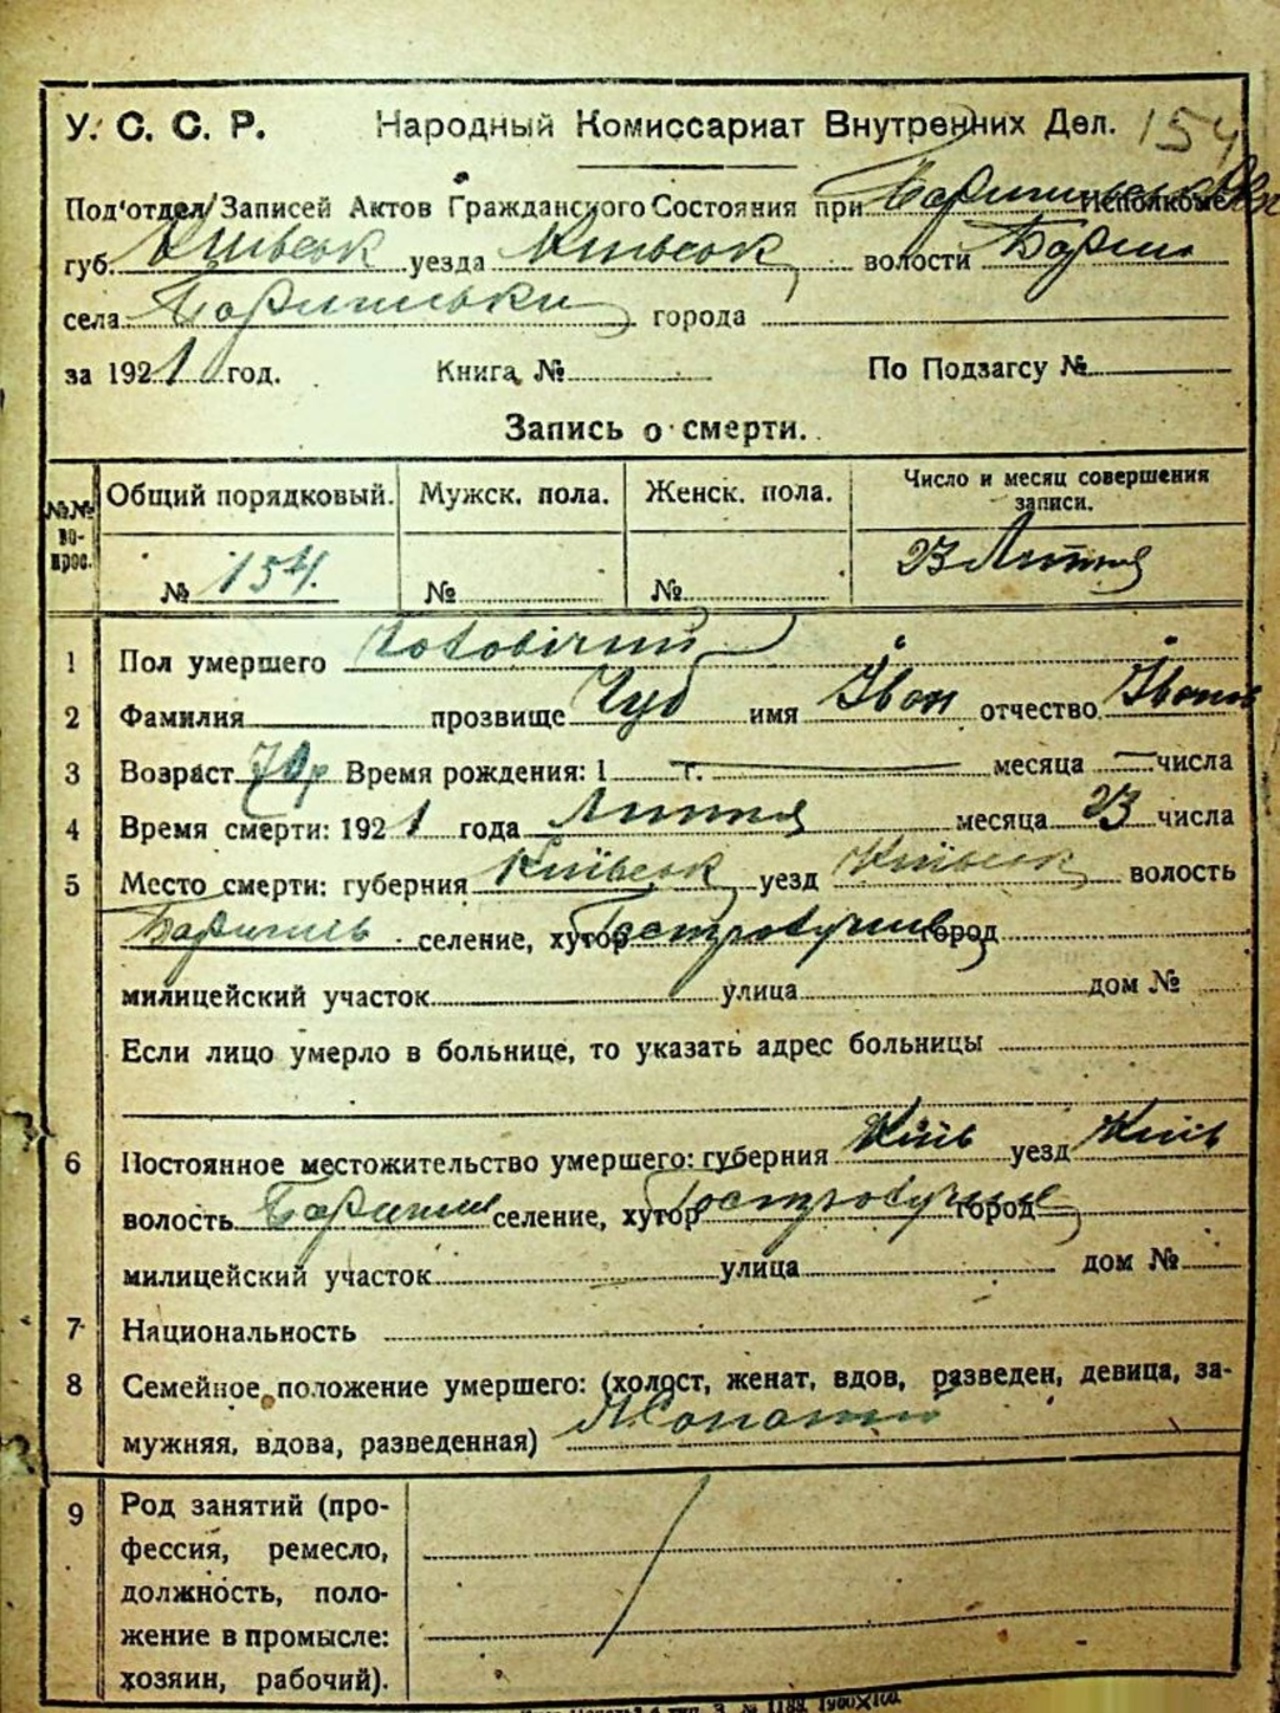 У. С. С. Р. Народный Комиссариат Внутренних Дел. 154
Под'отдел Записей Актов Гражданского Состояния при Исполкоме
губ. Київськ уезда Київськ волости Бориш
села Баришівки города
за 1921 год. Книга № По Подзагсу №
Запись о смерти.
№№ во-прос. Общий порядковый. Мужск. пола. Женск. пола. Число и месяц совершения записи.
№ 154. № № 23 Липня
1 Пол умершего Чоловічий
2 Фамилия прозвище Чуб имя Іван отчество Іванов
3 Возраст 70 р Время рождения: 1 г. месяца числа
4 Время смерти: 1921 года Липня месяца 23 числа
5 Место смерти: губерния Київськ уезд Київськ волость
Баришів селение, хутор город
милицейский участок улица дом №
Если лицо умерло в больнице, то указать адрес больницы
6 Постоянное местожительство умершего: губерния Київ уезд Київ
волость Бариш селение, хутор город
милицейский участок улица дом №
7 Национальность
8 Семейное положение умершего: (холост, женат, вдов, разведен, девица, за-
мужняя, вдова, разведенная) Жонатий
9 Род занятий (про-
фессия, ремесло,
должность, поло-
жение в промысле:
хозяин, рабочий).